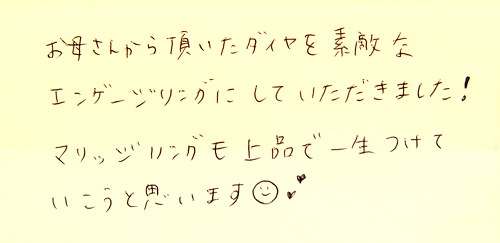 お母さんから頂いたダイヤを素敵な
エンゲージリングにしていただきました!
マリッジリングモ上品で一生つけて
いこうと思います☺💕